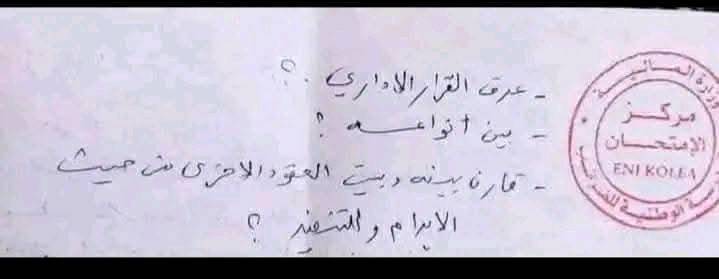 - عرف القرار الاداري ؟
- بين أنواعه ؟
- قارن بينه وبين العقود الاخرى من حيث
الابرام والتنفيذ ؟
وزارة المالية
مركز
الإمتحان
ENI KOLEA
الوطنية